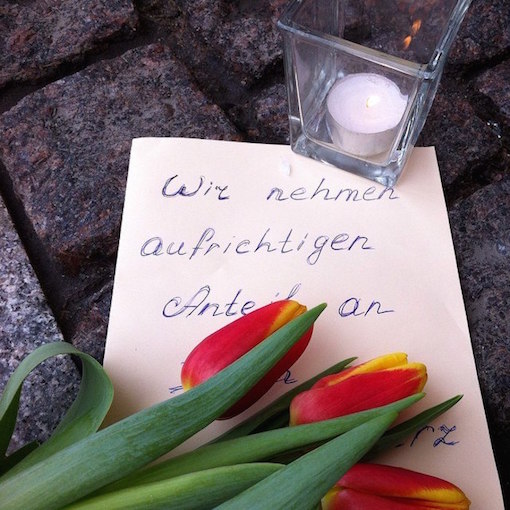 Wir nehmen
aufrichtigen
Anteil an